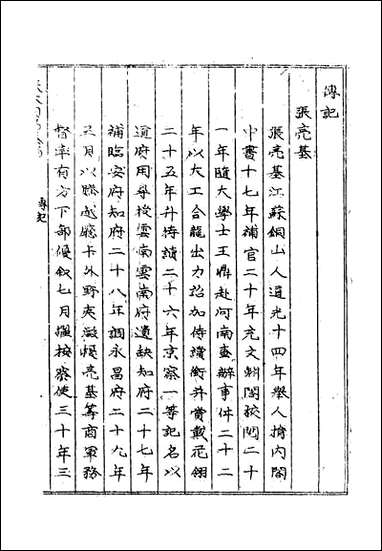 傳記
張亮基
張亮基江蘇銅山人道光十四年舉人捐內閣
中書十七年補官二十年充文淵閣校閱二十
一年隨大學士王鼎赴河南查辦事件二十二
年以大工合龍出力詔加侍讀銜并賞戴花翎
二十五年升侍讀二十六年京察一等記名以
道府用尋授雲南雲南府遺缺知府二十七年
補臨安府知府二十八年調永昌府二十九年
三月以騰越廳卡外野夷滋擾亮基籌商軍務
督率有方下部優敘七月擢按察使三十年三
傳記